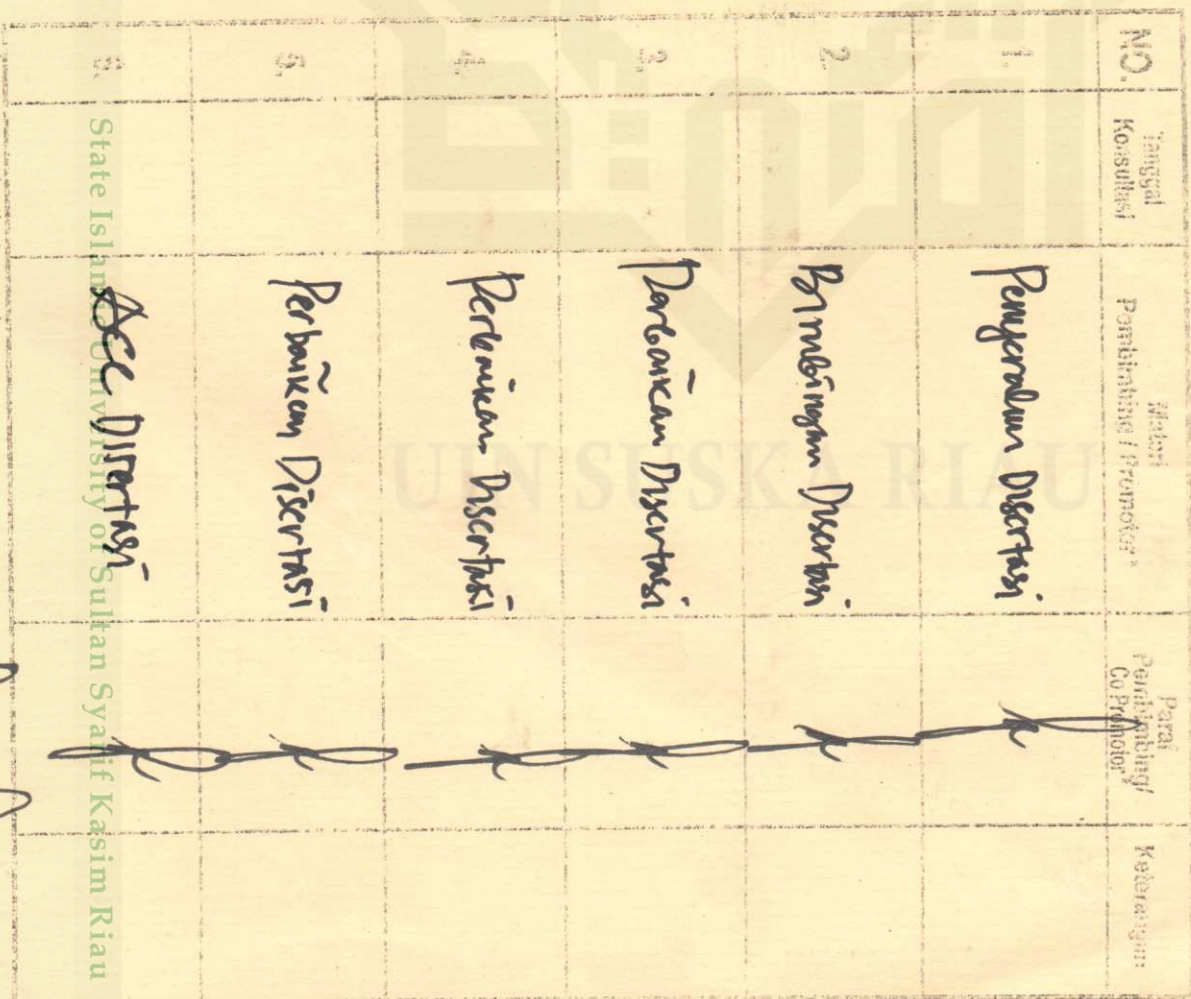 NO.
Tanggal
Konsultasi
Materi
Pembimbing / Promotor *
Paraf
Pembimbing/
Co Promotor*
Keterangan
1. Penyerahan Disertasi
2. Bimbingan Disertasi
3. Perbaikan Disertasi
4. Perbaikan Disertasi
5. Perbaikan Disertasi
6. Acc Disertasi
UIN SUSKA RIAU
State Islamic University of Sultan Syarif Kasim Riau